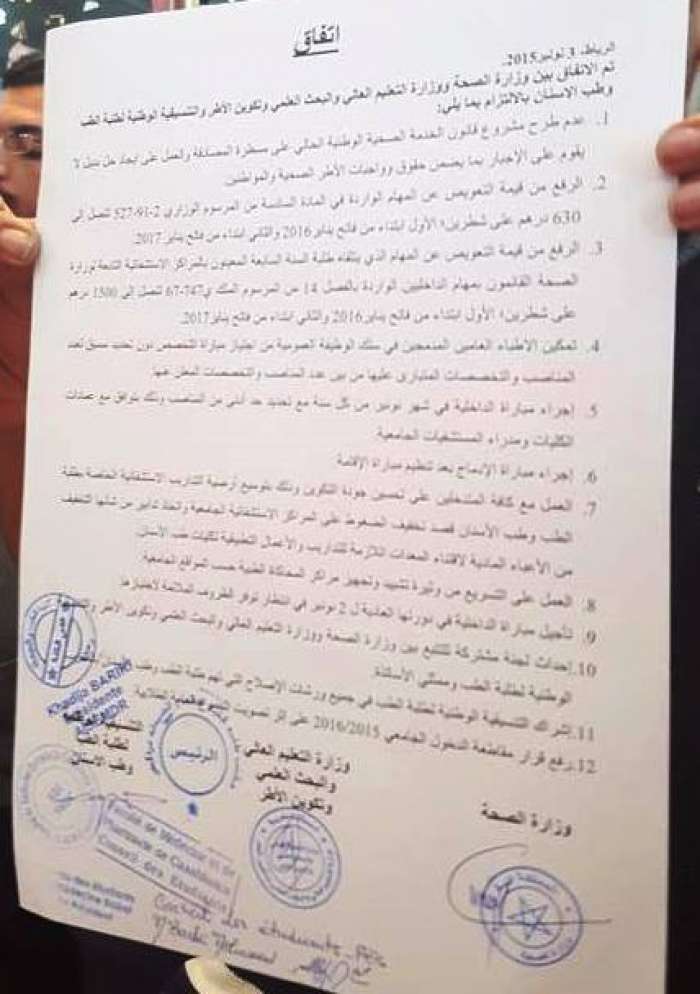 اتفاق
الرباط، 3 نونبر 2015.
تم الاتفاق بين وزارة الصحة ووزارة التعليم العالي والبحث العلمي وتكوين الأطر والتنسيقية الوطنية لطلبة الطب
وطب الاسنان بالالتزام بما يلي:
1. عدم طرح مشروع قانون الخدمة الصحية الوطنية الحالي على مسطرة المصادقة والعمل على إيجاد حل بديل لا
يقوم على الإجبار بما يضمن حقوق وواجبات الأطر الصحية والمواطنين.
2. الرفع من قيمة التعويض عن المهام الواردة في المادة السادسة من المرسوم الوزاري 2-91-527 لتصل إلى
630 درهم على شطرين؛ الأول ابتداء من فاتح يناير 2016 والثاني ابتداء من فاتح يناير 2017.
3. الرفع من قيمة التعويض عن المهام الذي يتلقاه طلبة السنة السابعة المعينون بالمراكز الاستشفائية التابعة لوزارة
الصحة القائمون بمهام الداخليين الواردة بالفصل 14 من المرسوم الملكي 747-67 لتصل إلى 1500 درهم
على شطرين؛ الأول ابتداء من فاتح يناير 2016 والثاني ابتداء من فاتح يناير 2017.
4. تمكين الأطباء العامين المدمجين في سلك الوظيفة العمومية من اجتياز مباراة التخصص دون تحديد مسبق لعدد
المناصب والتخصصات المتبارى عليها من بين عدد المناصب والتخصصات المعلن عنها.
5. إجراء مباراة الداخلية في شهر نونبر من كل سنة مع تحديد حد أدنى من المناصب وذلك بتوافق مع عمادات
الكليات ومدراء المستشفيات الجامعية.
6. إجراء مباراة الإدماج بعد تنظيم مباراة الإقامة.
7. العمل مع كافة المتدخلين على تحسين جودة التكوين وذلك بتوسيع أرضية التداريب الاستشفائية الخاصة بطلبة
الطب وطب الأسنان قصد تخفيف الضغوط على المراكز الاستشفائية الجامعية واتخاذ تدابير من شأنها التخفيف
من الأعباء المادية لاقتناء المعدات اللازمة للتداريب والأعمال التطبيقية لكليات طب الأسنان.
8. العمل على التسريع من وتيرة تشييد وتجهيز مراكز المحاكاة الطبية حسب المواقع الجامعية.
9. تأجيل مباراة الداخلية في دورتها العادية ل 2 نونبر في انتظار توفر الظروف الملائمة لاجتيازها.
10. إحداث لجنة مشتركة للتتبع بين وزارة الصحة ووزارة التعليم العالي والبحث العلمي وتكوين الأطر
الوطنية لطلبة الطب وممثلي الأساتذة.
11. إشراك التنسيقية الوطنية لطلبة الطب في جميع ورشات الإصلاح التي تهم طلبة الطب وطب
12. رفع قرار مقاطعة الدخول الجامعي 2016/2015 على إثر تصويت
وزارة الصحة
وزارة التعليم العالي
والبحث العلمي
وتكوين الأطر
لطلبة الطب
وطب الاسنان
الرئيس
Khadija
Faculté de Médecine et de
Pharmacie de Casablanca
Conseil des Etudiants